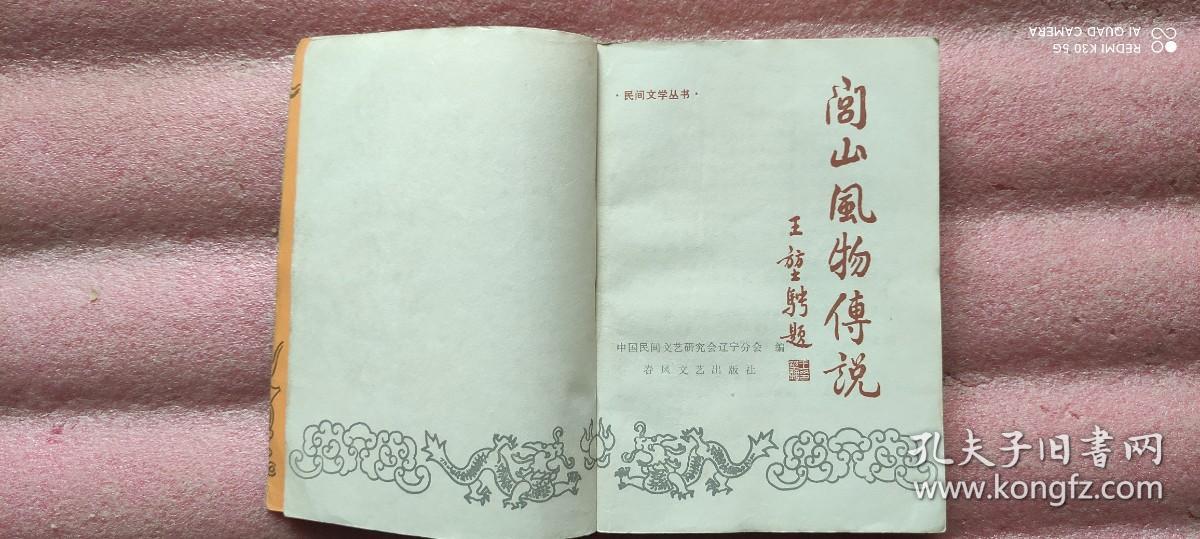 ·民间文学丛书·
闾山風物傳説
王堃騁題
中国民间文艺研究会辽宁分会 编
春风文艺出版社
REDMI K30 5G
AI QUAD CAMERA
孔夫子旧书网
www.kongfz.com